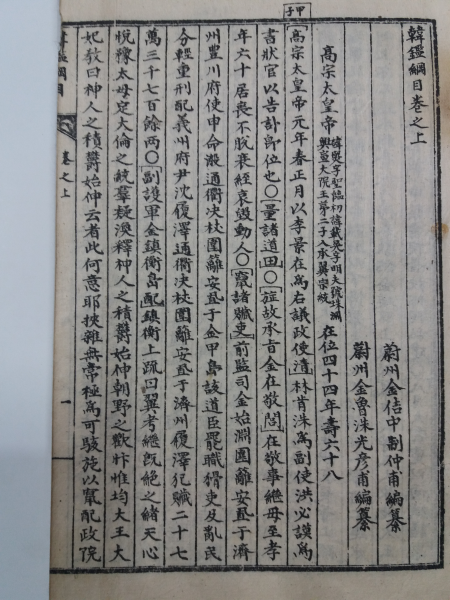 甲子
韓鑑綱目卷之上
蔚州金佶中劃仲甫編纂
蔚州金魯洙光彦甫編纂
高宗太皇帝 諱㷩字聖臨初諱載晃字明夫號珠淵
興宣大院王第二子入承翼宗統 在位四十四年壽六十八
高宗太皇帝元年春正月以李景在爲右議政使淸林肯洙爲副使洪必謨爲
書狀官以告訃卽位也○量諸道田○旌故承旨金在敬閭在敬事繼母至孝
年六十居喪不脫衰絰哀毀動人○竄諸贓吏前監司金始淵圍籬安置于濟
州豊川府使申命濲通衢决杖圍籬安置于金甲島該道臣罷職猾吏及亂民
分輕重刑配義州府尹沈履澤通衢决杖圍籬安置于濟州履澤犯贓二十七
萬三千七百餘兩○副護軍金鎭衡島配鎭衡上疏曰翼考繼旣絶之緖天心
悅豫太母定大倫之統羣疑渙釋神人之積鬱始伸朝野之歡忭惟均大王大
妃敎曰神人之積鬱始伸云者此何意耶挾雜無常極爲可駭施以竄配政院
韓鑑綱目
卷之上
一